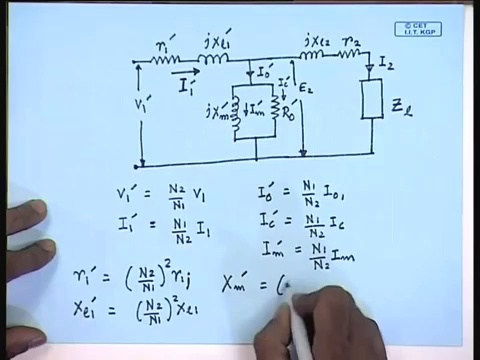 © CET
I.I.T. KGP
r₁′ jXℓ₁′ jXℓ₂ r₂
I₁′ I₀′ I₂
V₁′ jXm′ Im′ Ic′ R₀′ E₂ Zℓ
V₁′ = N₂/N₁ V₁ I₀′ = N₁/N₂ I₀,
I₁′ = N₁/N₂ I₁ Ic′ = N₁/N₂ Ic
Im′ = N₁/N₂ Im
r₁′ = (N₂/N₁)² r₁; Xm′ = (
Xℓ₁′ = (N₂/N₁)² Xℓ₁